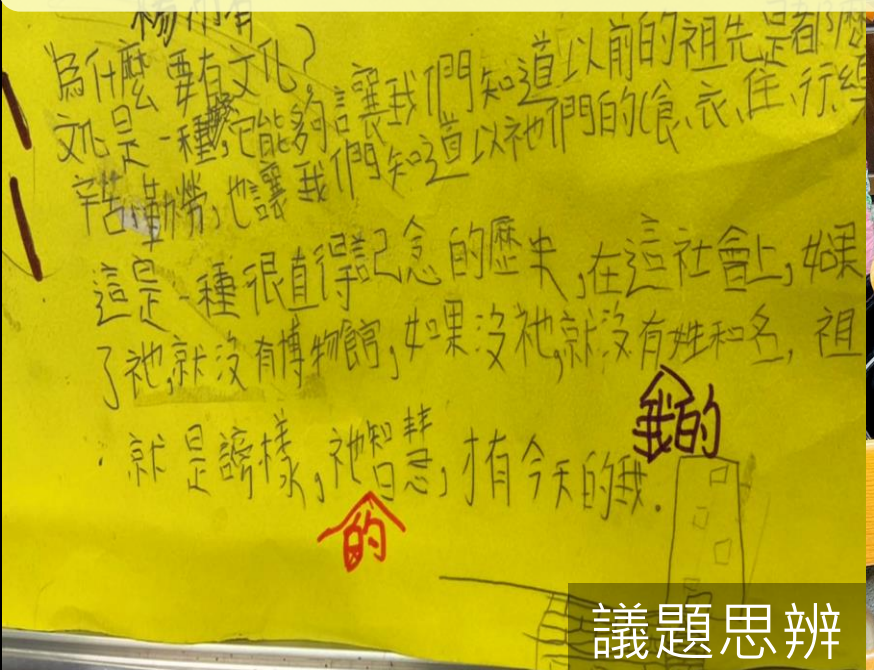 為什麼要有文化?
文化是一種,它能夠讓我們知道以前的祖先是都
辛苦勤勞,也讓我們知道以祂們的食、衣、住、行、
這是一種很直得記念的歷史,在這社會上,如果
了祂,就沒有博物館,如果沒祂,就沒有姓和名,祖
我的
就是謗樣,祂智慧,才有今天的我.
的
議題思辨